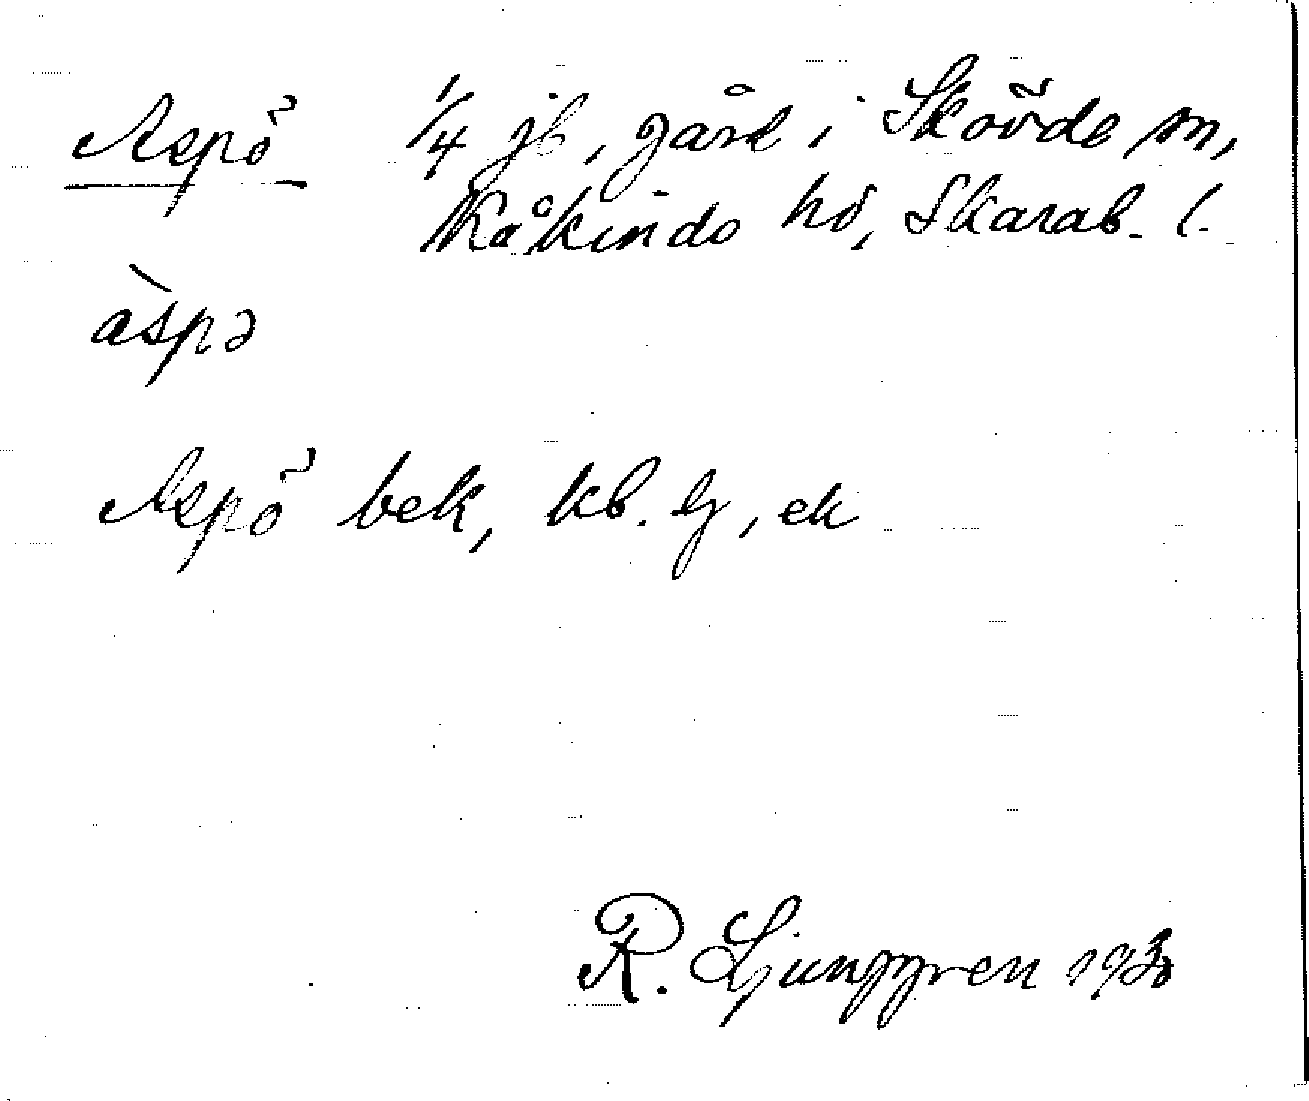 Aspö 1/4 jb, gård i Skövde sn,
Kåkinds hd, Skarab. l.
àspə
Aspö bek, kb. Lj, ek
R. Ljunggren 1930